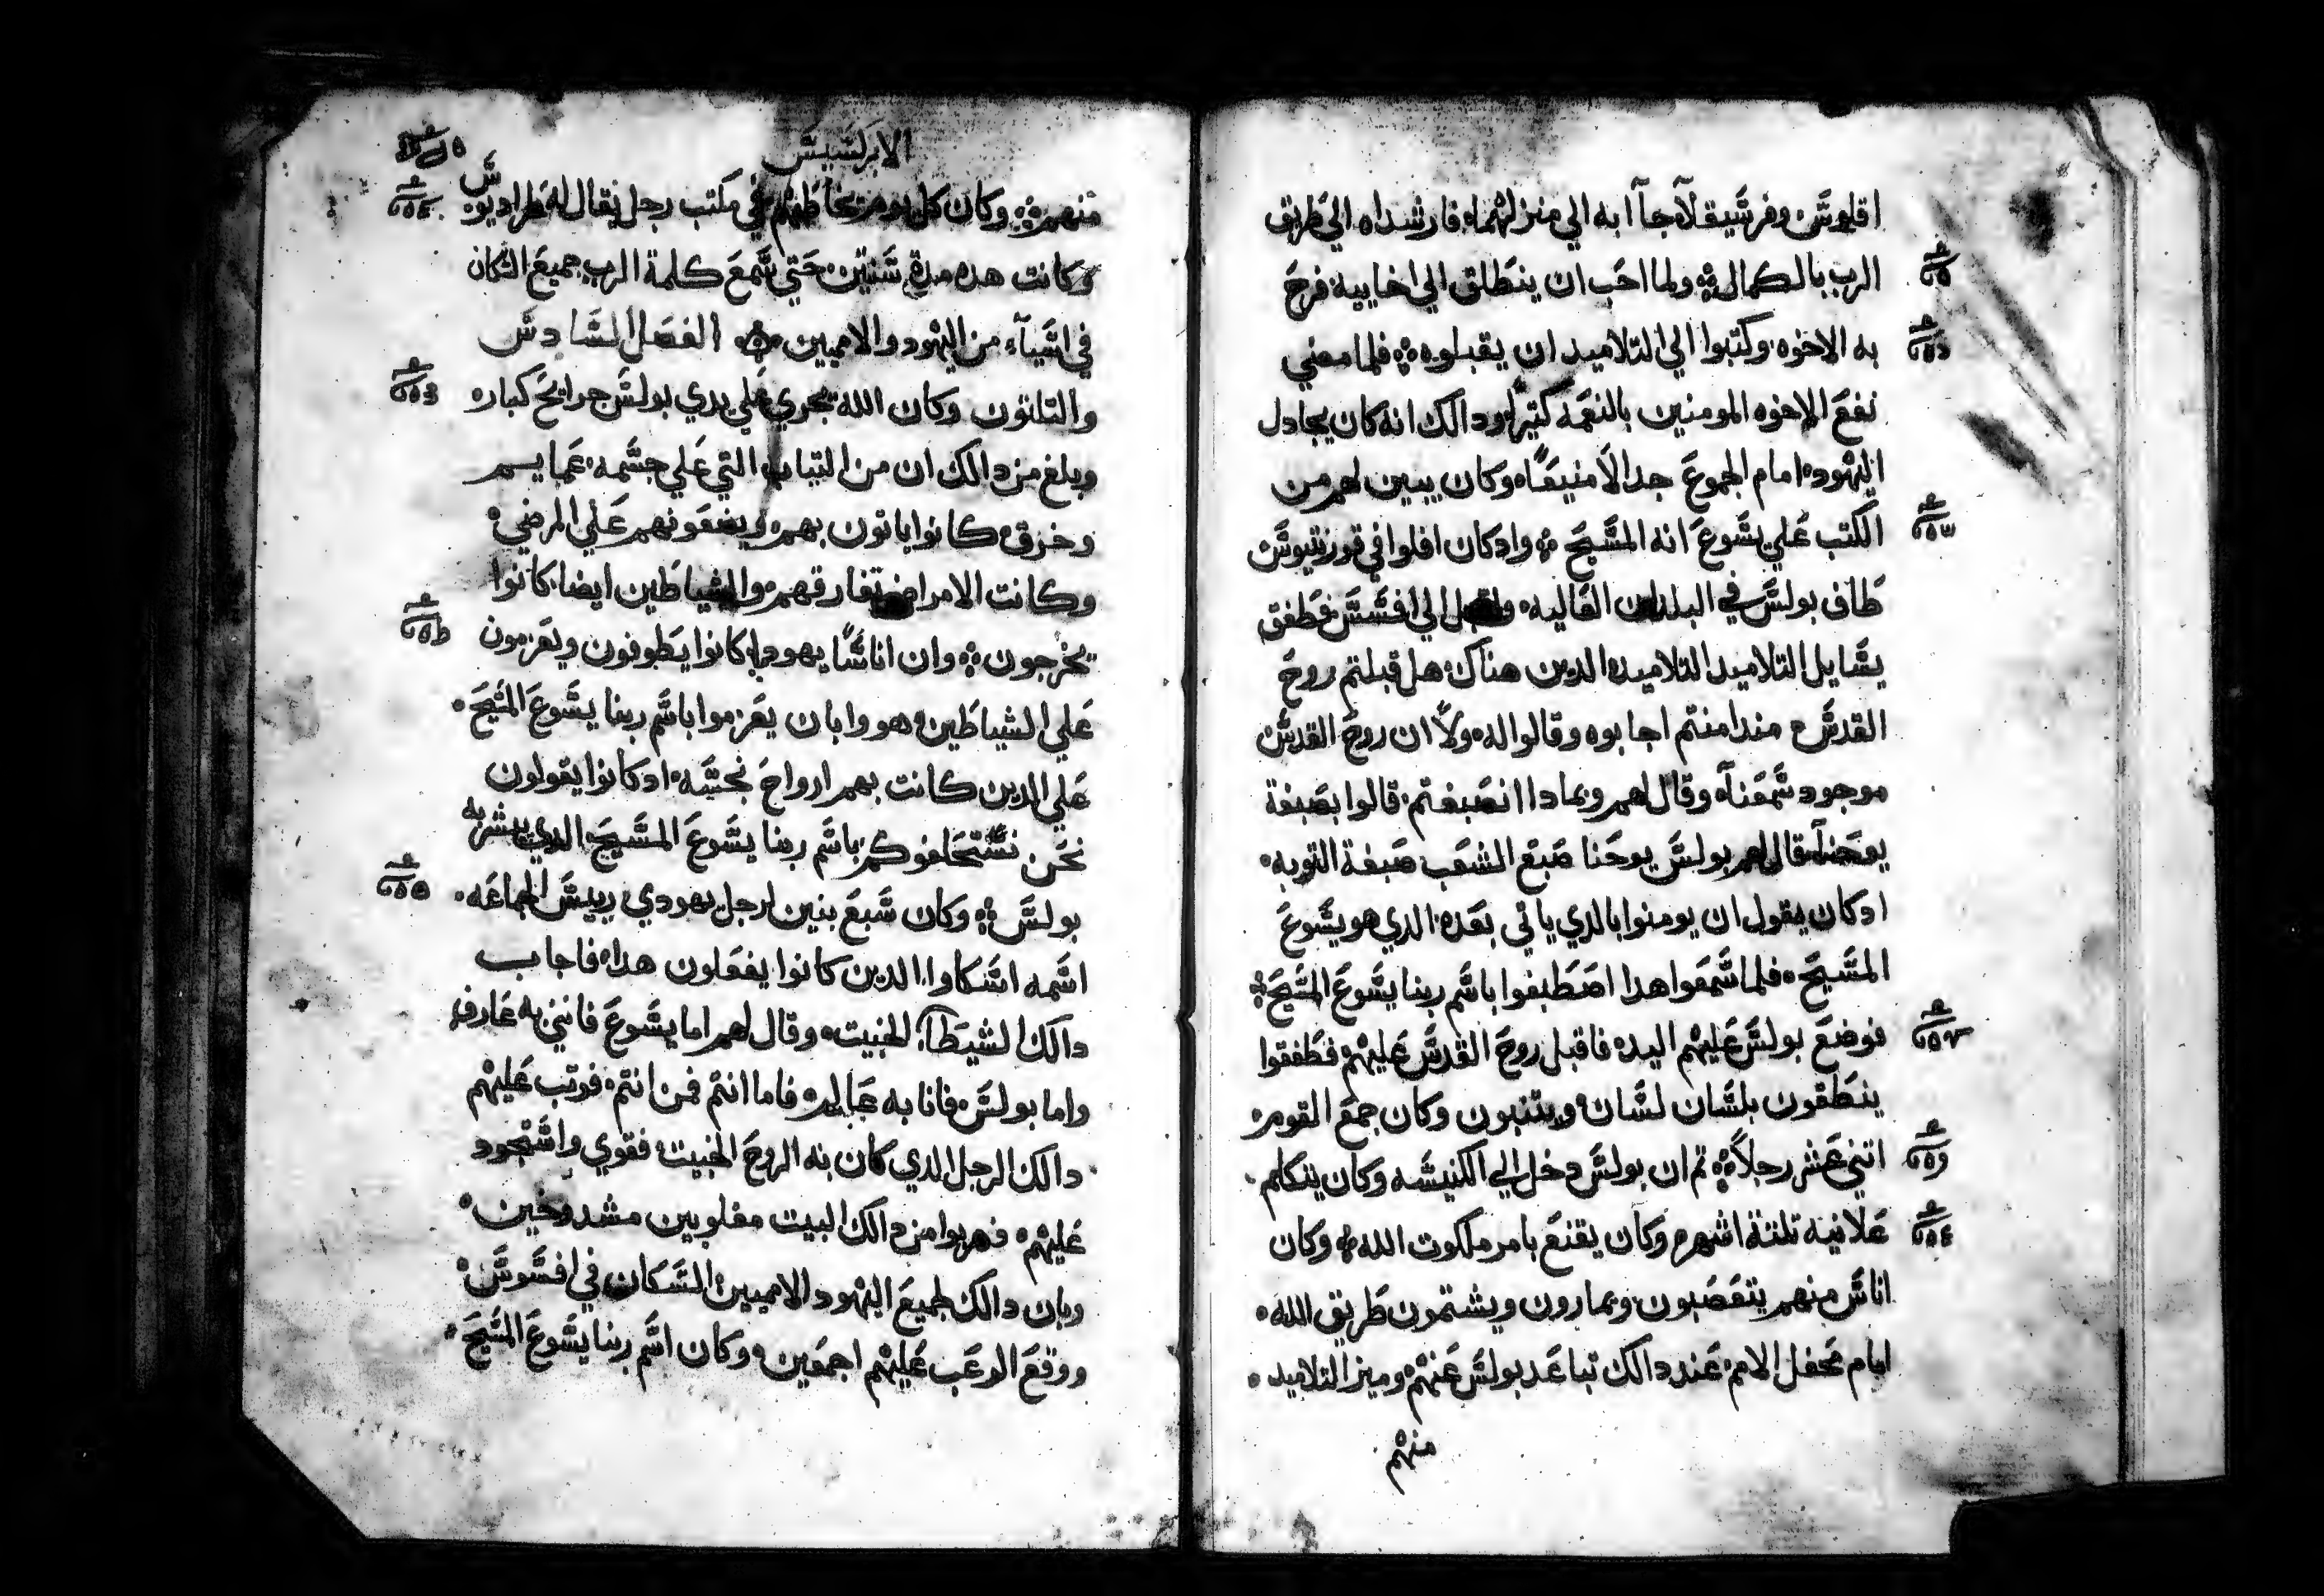 اقلوش وفرشيقلا جاآ به الي منزلهما فارشداه الي طريق
الرب بالكمال ولما احب ان ينطلق الي اخاييه فرح
به الاخوه وكتبوا الي التلاميد ان يقبلوه فلما مضي
نفع الاخوه المومنين بالنعمه كتيرًا ودالك انه كان يجادل
اليهود امام الجموع جدالا منيعًا وكان يبين لهم من
الكتب علي يشوع انه المشيح وادكان افلوا في قورنتيوش
طاف بولش في البلدان العاليه واقبل الي افشش فطفق
يشايل التلاميد التلاميد الدين هناك هل قبلتم روح
القدش مند امنتم اجابوه وقالوا له ولا ان روح القدش
موجود شمعنا وقال لهم وبمادا انصبغتم قالوا بصبغة
يوحنا قال لهم بولش يوحنا صبغ الشعب صبغة التوبه
ادكان يقول ان يومنوا بالدي ياتي بعده الدي هو يشوع
المشيح فلما شمعوا هدا اصطبغوا باشم ربنا يشوع المشيح
فوضع بولش عليهم اليد فاقبل روح القدش عليهم فطفقوا
ينطقون بلشان لشان ويتنبون وكان جمع القوم
اتني عشر رجلاً تم ان بولش دخل الي الكنيشه وكان يتكلم
علانيه تلتة اشهر وكان يقنع بامر ملكوت الله وكان
اناش منهم يتعصبون ويمارون ويشتمون طريق الله
امام محفل الامم عند دالك تباعد بولش عنهم وميز التلاميد
منهم
الابركشيش
منهم وكان كل يوم يخاطبهم في مكتب رجل يقال له طراديوش
وكانت هده مدة شنتين حتي شمع كلمة الرب جميع الشكان
في اشياء من اليهود والامميين الفصل الشادش
والتلاتون وكان الله يجري علي يدي بولش جرايح كباره
وبلغ من دالك ان من التياب التي علي جشمه عمايم
وخرق كانوا ياتون بهم ويضعونهم علي المرضي
وكانت الامراض تفارقهم والشياطين ايضا كانوا
يخرجون وان اناشًا يهودا كانوا يطوفون ويعزمون
علي الشياطين هووا بان يعزموا باشم ربنا يشوع المشيح
علي الدين كانت بهم ارواح نجشه ادكانوا يقولون
نحن نشتحلفوكم باشم ربنا يشوع المشيح الدي يبشر به
بولش وكان شبع بنين لرجل يهودي رييش الجماعه
اشمه اشكاوا الدين كانوا يفعلون هدا فاجاب
دالك الشيطان الخبيت وقال لهم اما يشوع فانني به عارف
واما بولش فانا به عالم فاما انتم فمن انتم فوتب عليهم
دالك الرجل الدي كان به الروح الخبيت فقوي واشتحود
عليهم فهربوا من دالك البيت مغلوبين مشدوخين
وبان دالك لجميع اليهود الامميين الشكان في افشوش
ووقع الرعب عليهم اجمعين وكان اشم ربنا يشوع المشيح